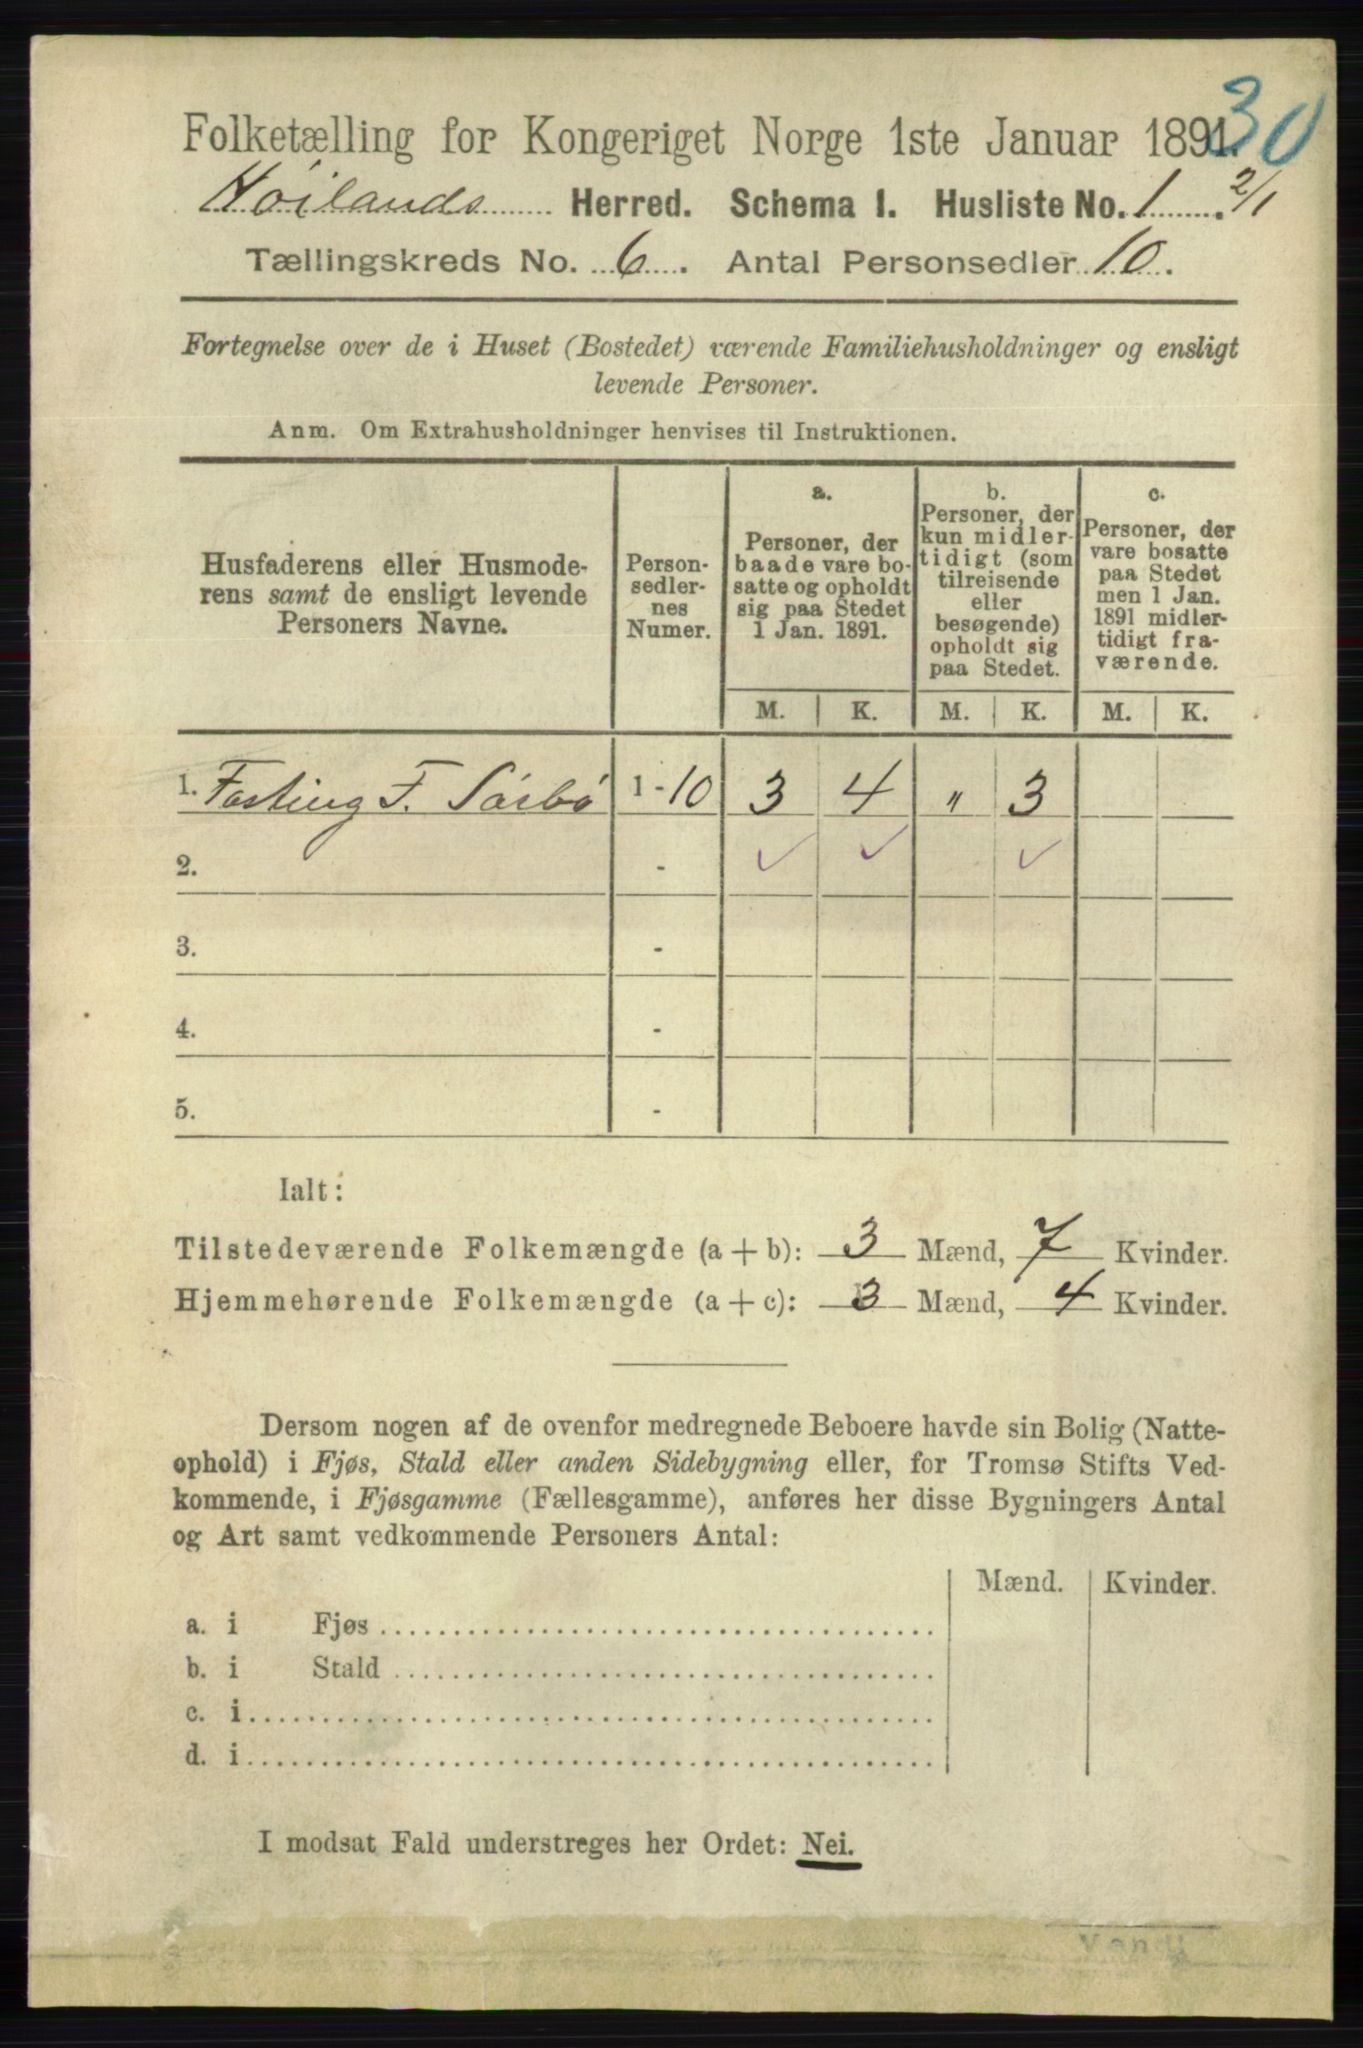 30
Folketælling for Kongeriget Norge 1ste Januar 1891.
Höilands Herred. Schema 1. Husliste No. 1. 2/1
Tællingskreds No. 6. Antal Personsedler 10.
Fortegnelse over de i Huset (Bostedet) værende Familiehusholdninger og ensligt
levende Personer.
Anm. Om Extrahusholdninger henvises til Instruktionen.
Husfaderens eller Husmode-
rens samt de ensligt levende
Personers Navne.
Person-
sedler-
nes
Numer.
a.
Personer, der
baade vare bo-
satte og opholdt
sig paa Stedet
1 Jan. 1891.
b.
Personer, der
kun midler-
tidigt (som
tilreisende
eller
besøgende)
opholdt sig
paa Stedet.
c.
Personer, der
vare bosatte
paa Stedet
men 1 Jan.
1891 midler-
tidigt fra-
værende.
M. K. M. K. M. K.
1. Fasting F. Sörbö 1 - 10 3 4 " 3
2. - ✓ ✓ ✓
3. -
4. -
5. -
Ialt:
Tilstedeværende Folkemængde (a + b): 3 Mænd, 7 Kvinder.
Hjemmehørende Folkemængde (a + c): 3 Mænd, 4 Kvinder.
Dersom nogen af de ovenfor medregnede Beboere havde sin Bolig (Natte-
ophold) i Fjøs, Stald eller anden Sidebygning eller, for Tromsø Stifts Ved-
kommende, i Fjøsgamme (Fællesgamme), anføres her disse Bygningers Antal
og Art samt vedkommende Personers Antal:
Mænd. Kvinder.
a. i Fjøs
b. i Stald
c. i
d. i
I modsat Fald understreges her Ordet: Nei.